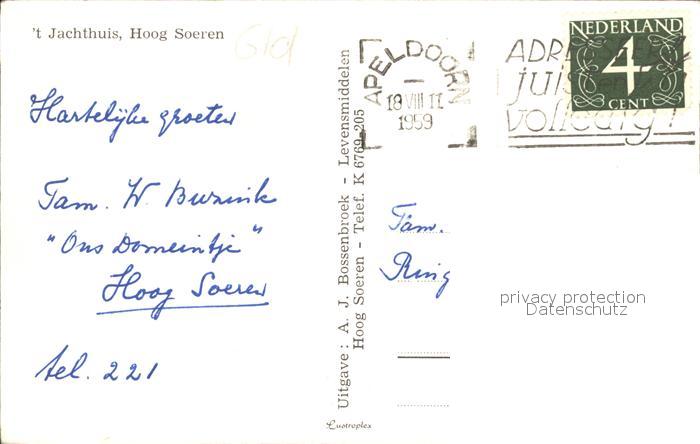 't Jachthuis, Hoog Soeren
Hartelijke groeten
Fam. W.
"Ons Domeintje"
Hoog Soeren
tel. 221
Uitgave: A. J. Bossenbroek - Levensmiddelen
Hoog Soeren - Telef. K 6769-205
Lustroplex
APELDOORN
18 VIII 11
1959
volledig!
NEDERLAND
4
CENT
Fam.
Ring
privacy protection
Datenschutz